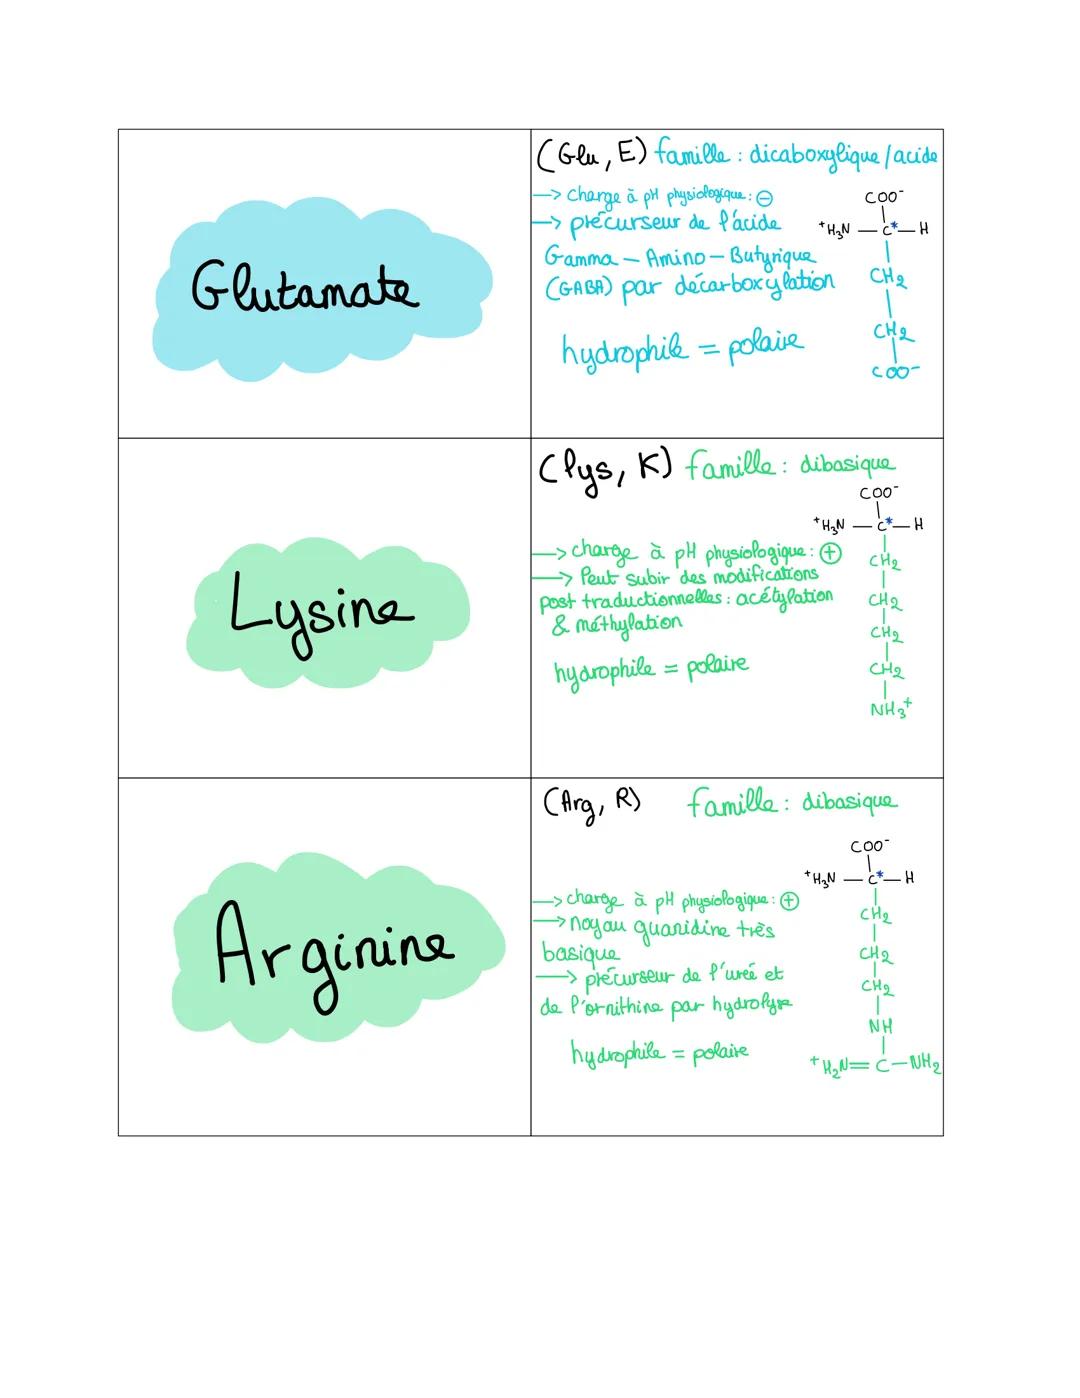 Glutamate
(Glu, E) famille : dicaboxylique/acide
—> charge à pH physiologique : ⊖
—> précurseur de l'acide
Gamma - Amino - Butyrique
(GABA) par décarboxylation
hydrophile = polaire
COO⁻
⁺H₃N — C* — H
CH₂
CH₂
COO⁻
Lysine
(lys, K) famille : dibasique
—> charge à pH physiologique : ⊕
—> Peut subir des modifications
post traductionnelles : acétylation
& méthylation
hydrophile = polaire
COO⁻
⁺H₃N — C* — H
CH₂
CH₂
CH₂
CH₂
NH₃⁺
Arginine
(Arg, R) famille : dibasique
—> charge à pH physiologique : ⊕
—> noyau guanidine très
basique
—> précurseur de l'urée et
de l'ornithine par hydrolyse
hydrophile = polaire
COO⁻
⁺H₃N — C* — H
CH₂
CH₂
CH₂
NH
⁺H₂N = C — NH₂